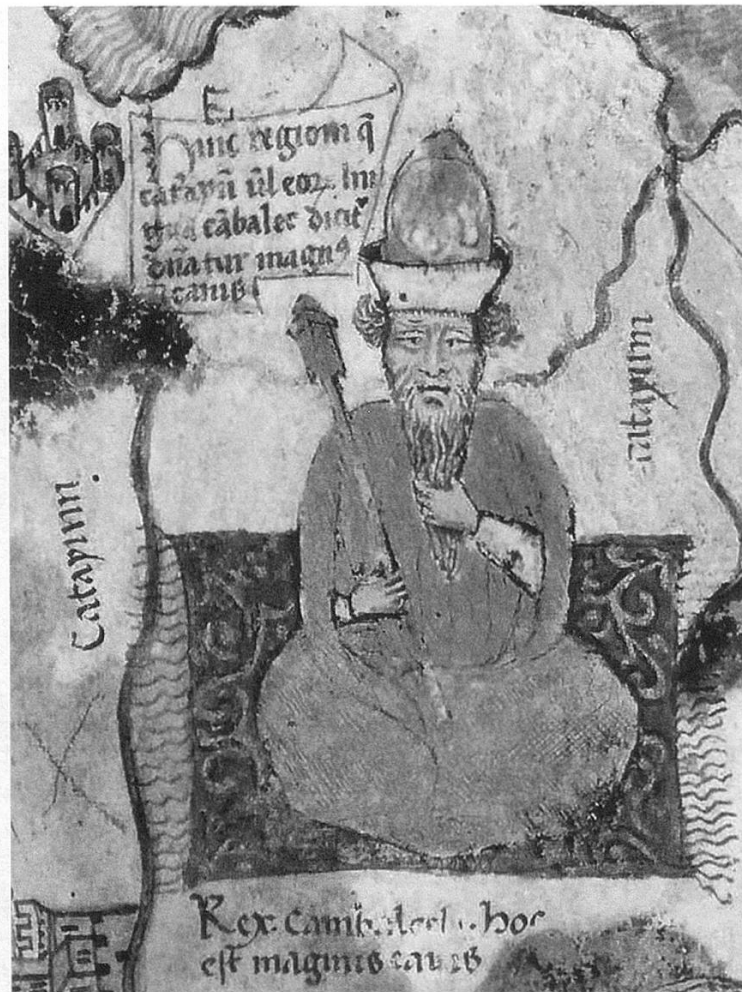 Huic regioni q̄
catayū ūl eoꝝ lin
gua cābalec dicit᷑
dn̄atur magnꝰ
canis
Catayum
catayum
Rex Camb hoc
est magnus canis